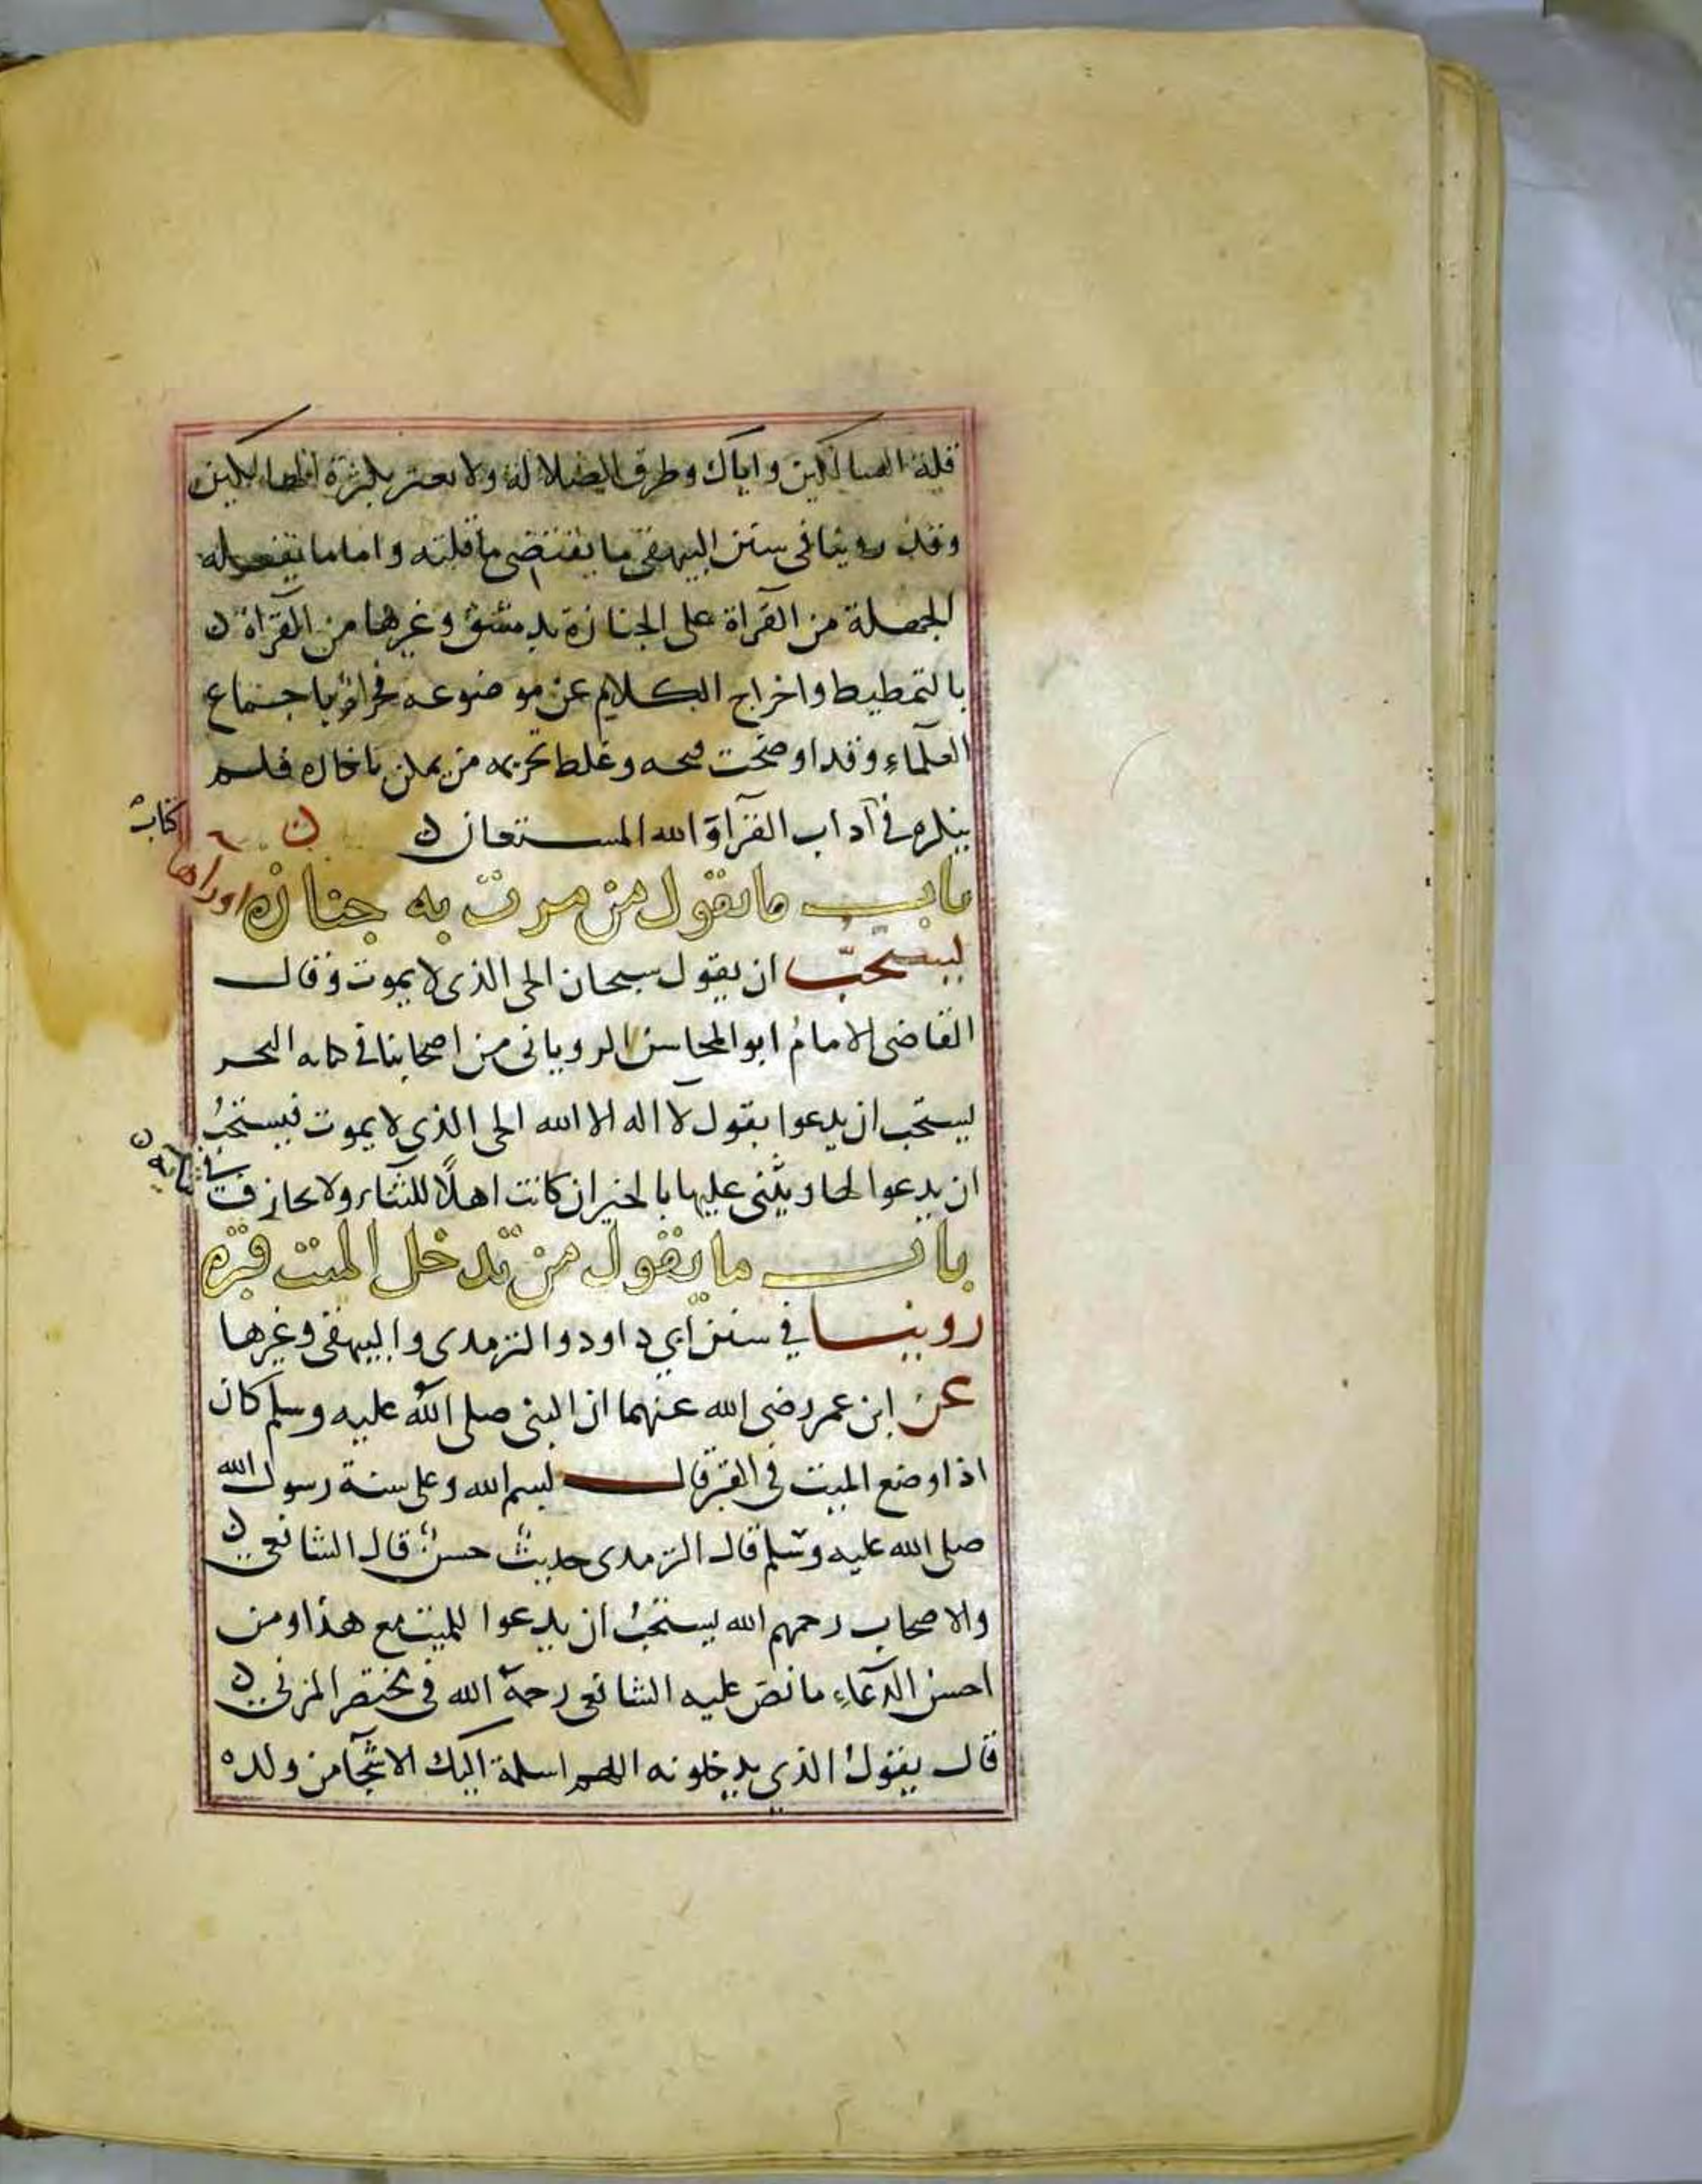 قلة السالكين واياك وطرق الضلالة ولا تغتر بكثرة الهالكين
وقد روينا في سنن البيهقي ما يقتضي ما قلته واما ما يفعله
الجهلة من القراة على الجنازة بدمشق وغيرها من القراة ن
بالتمطيط واخراج الكلام عن موضوعه فحرام باجتماع
العلماء وقد اوضحت قبحه وغلط تحريمه من يمكن انكاره فلم
ينكره في آداب القراة والله المستعان ن
باب ما يقول من مرت به جنازة اوراها
يستحب ان يقول سبحان الحى الذى لا يموت وقال
القاضى الامام ابو المحاسن الرويانى من اصحابنا فى كتابه البحر
يستحب ان يدعوا يقول لا اله الا الله الحى الذى لا يموت فيستحب
ان يدعوا لها ويثنى عليها بالخير ان كانت اهلًا للثناء ولا يجازف
في ثنايه ن
باب ما يقول من يدخل الميت قبره
روينا في سنن ابي داود والترمدى والبيهقى وغيرها
عن ابن عمر رضى الله عنهما ان النبى صلى الله عليه وسلم كان
اذا وضع الميت فى القبر قال بسم الله وعلى سنة رسول الله
صلى الله عليه وسلم قال الترمدى حديث حسن قال الشافعى ن
والاصحاب رحمهم الله يستحب ان يدعوا للميت مع هذا ومن
احسن الدعاء ما نص عليه الشافعى رحمة الله فى مختصر المزنى ن
قال يقول الذي يدخلونه اللهم اسلمة اليك الاشحا من ولده